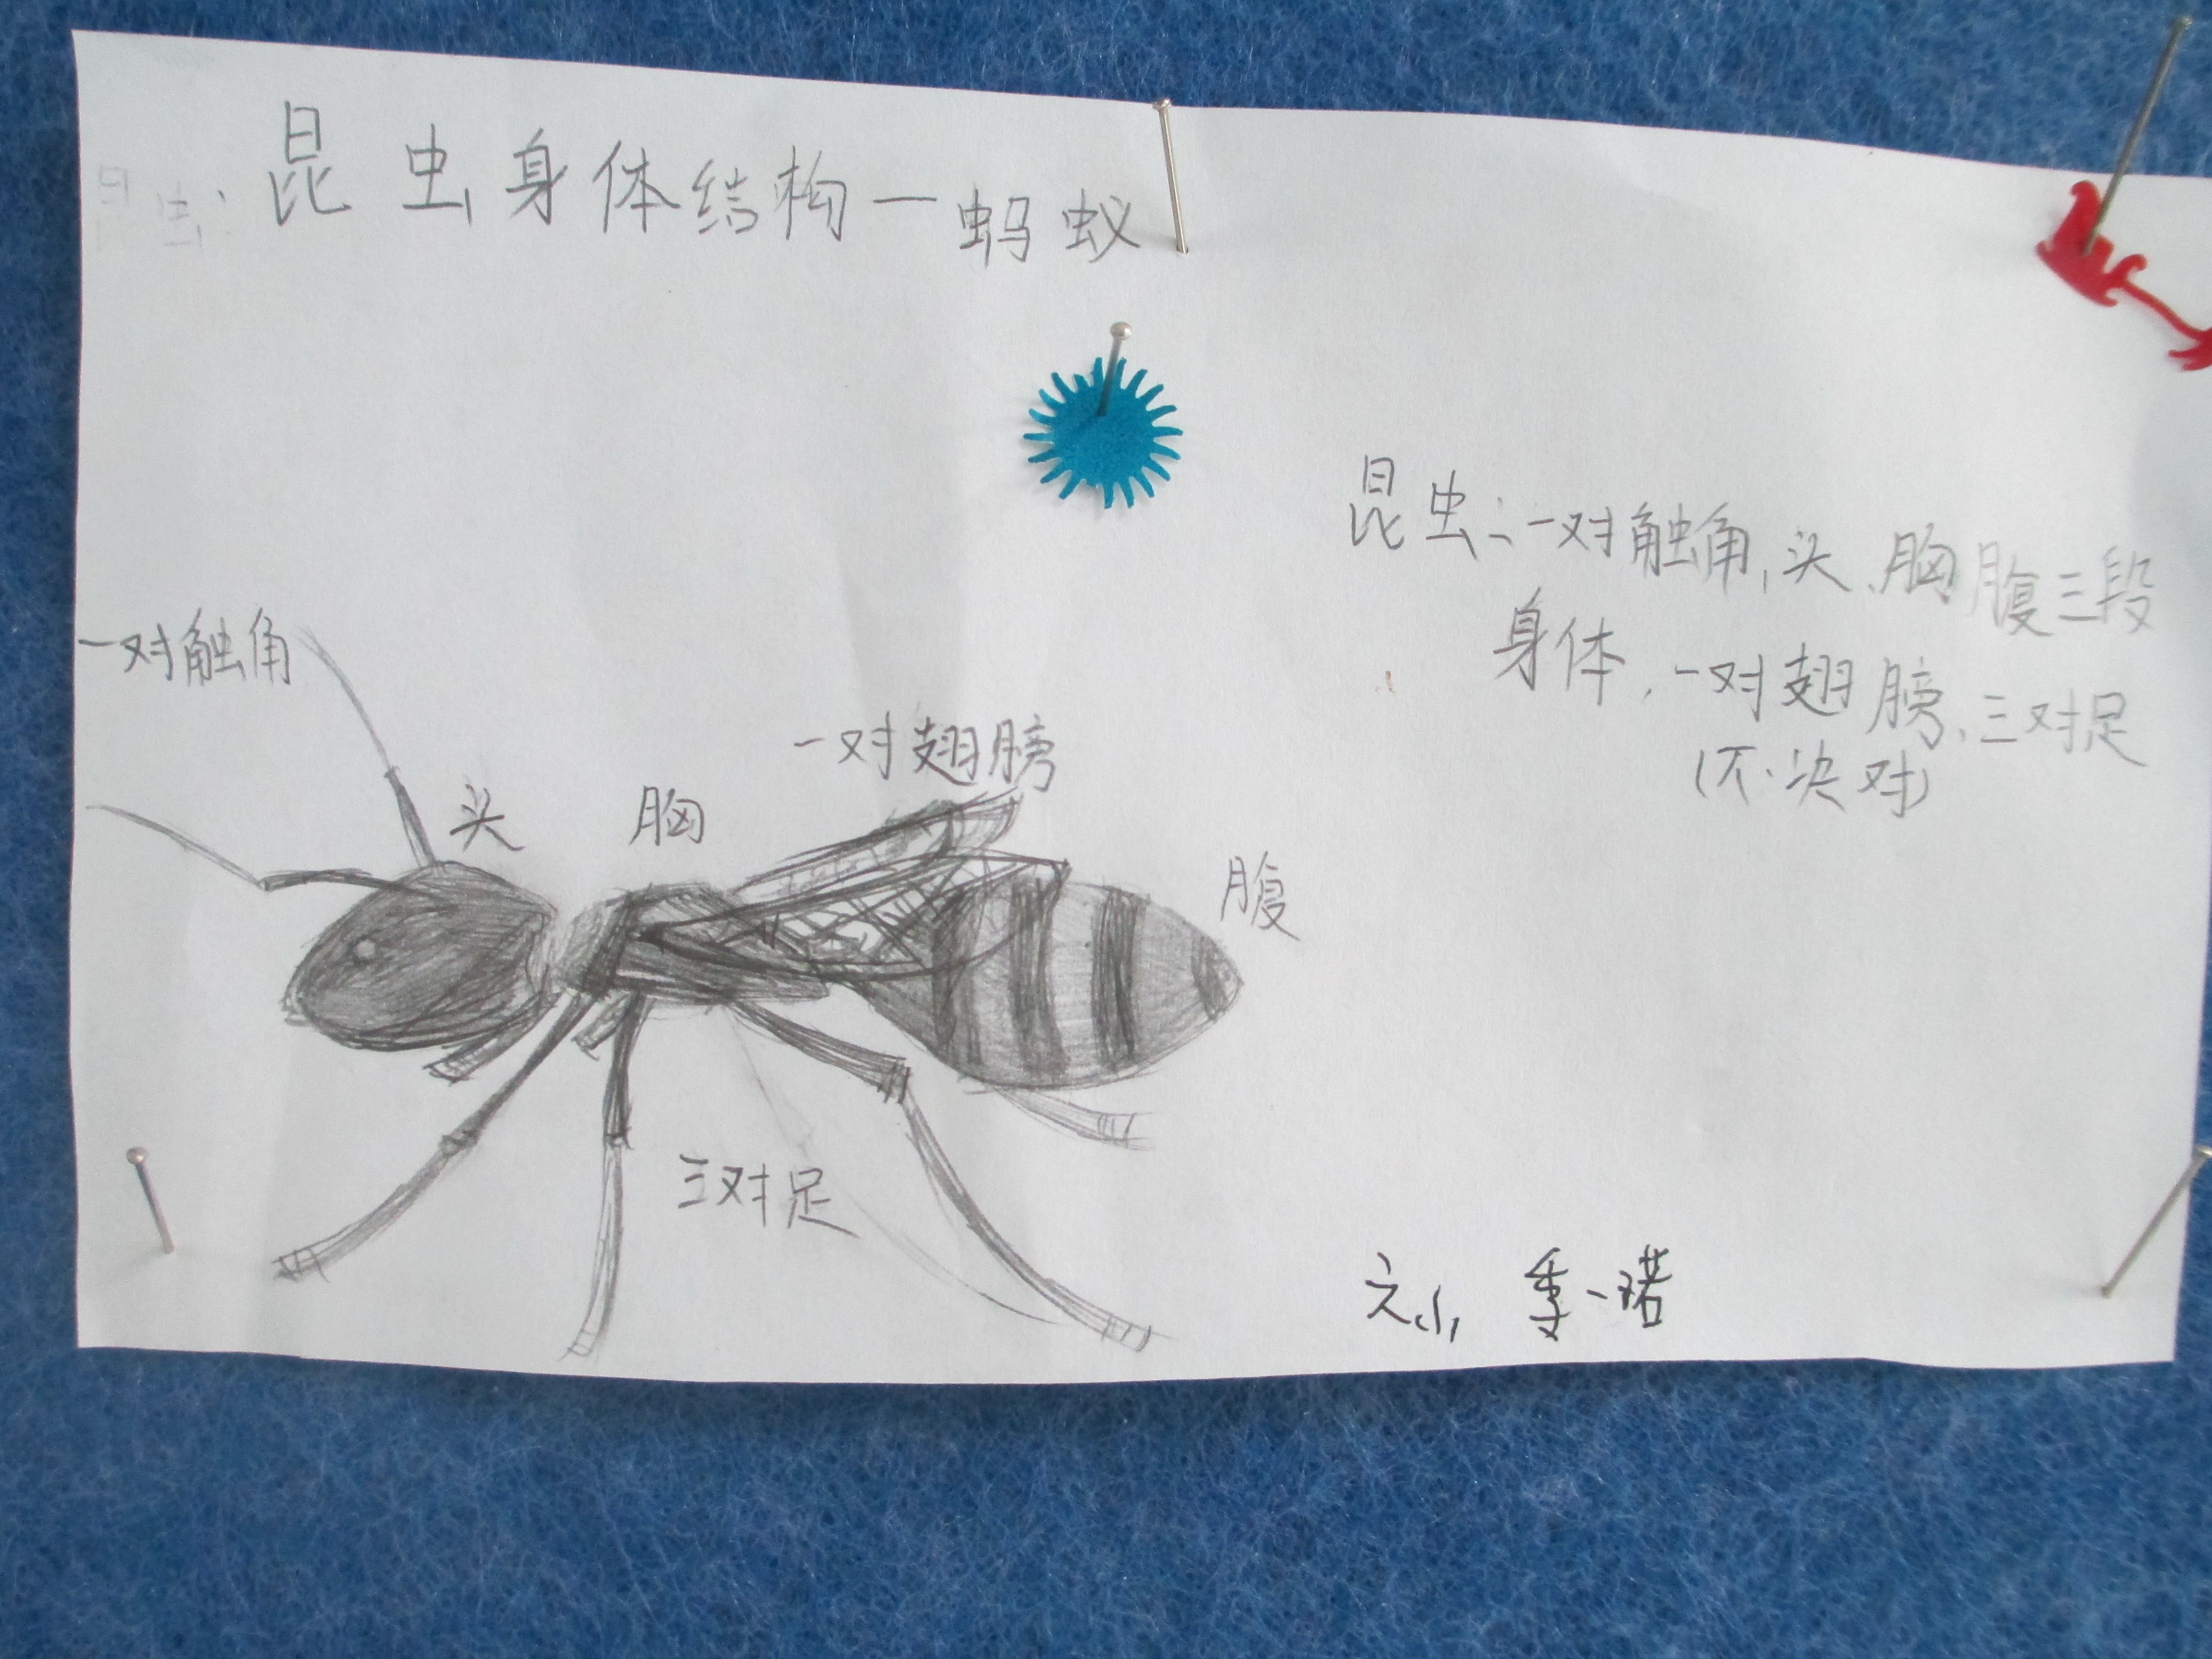 昆虫:
昆虫身体结构一蚂蚁
昆虫:一对触角,头、胸腹三段
身体,一对翅膀、三对足
(不决对)
一对触角
一对翅膀
头
胸
腹
三对足
六小 季一诺